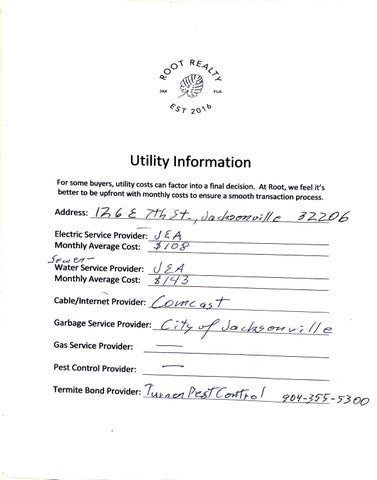 ROOT REALTY
JAX FLA
EST 2016
Utility Information
For some buyers, utility costs can factor into a final decision. At Root, we feel it's
better to be upfront with monthly costs to ensure a smooth transaction process.
Address: 126 E 7th St., Jacksonville 32206
Electric Service Provider: JEA
Monthly Average Cost: $108
Sewer-
Water Service Provider: JEA
Monthly Average Cost: $143
Cable/Internet Provider: Comcast
Garbage Service Provider: City of Jacksonville
Gas Service Provider: —
Pest Control Provider: —
Termite Bond Provider: Turner Pest Control 904-355-5300